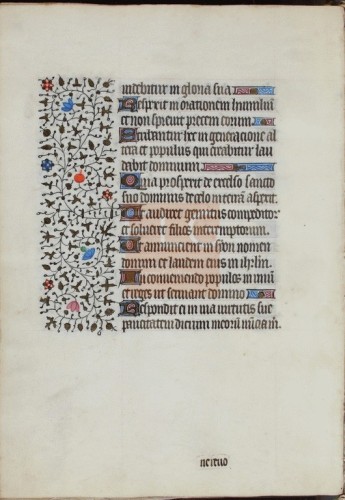 videbitur in gloria sua
Respexit in orationem humiliū
et non spreuit precem eorum
Scribantur hec in generacione al
tera et populus qui creabitur lau
dabit dominum
Quia prospexit de excelso sancto
suo dominus de celo in terrā aspexit
Ut audiret gemitus compeditor
et solueret filios interemptorum.
Ut annuncient in syon nomen
domini et laudem eius in ihrlm̄
In conueniendo populos in unū
et reges ut seruiant domino
Respondit ei in uia uirtutis sue
paucitatem dierum meorū nūcia m̄.
ne reuo